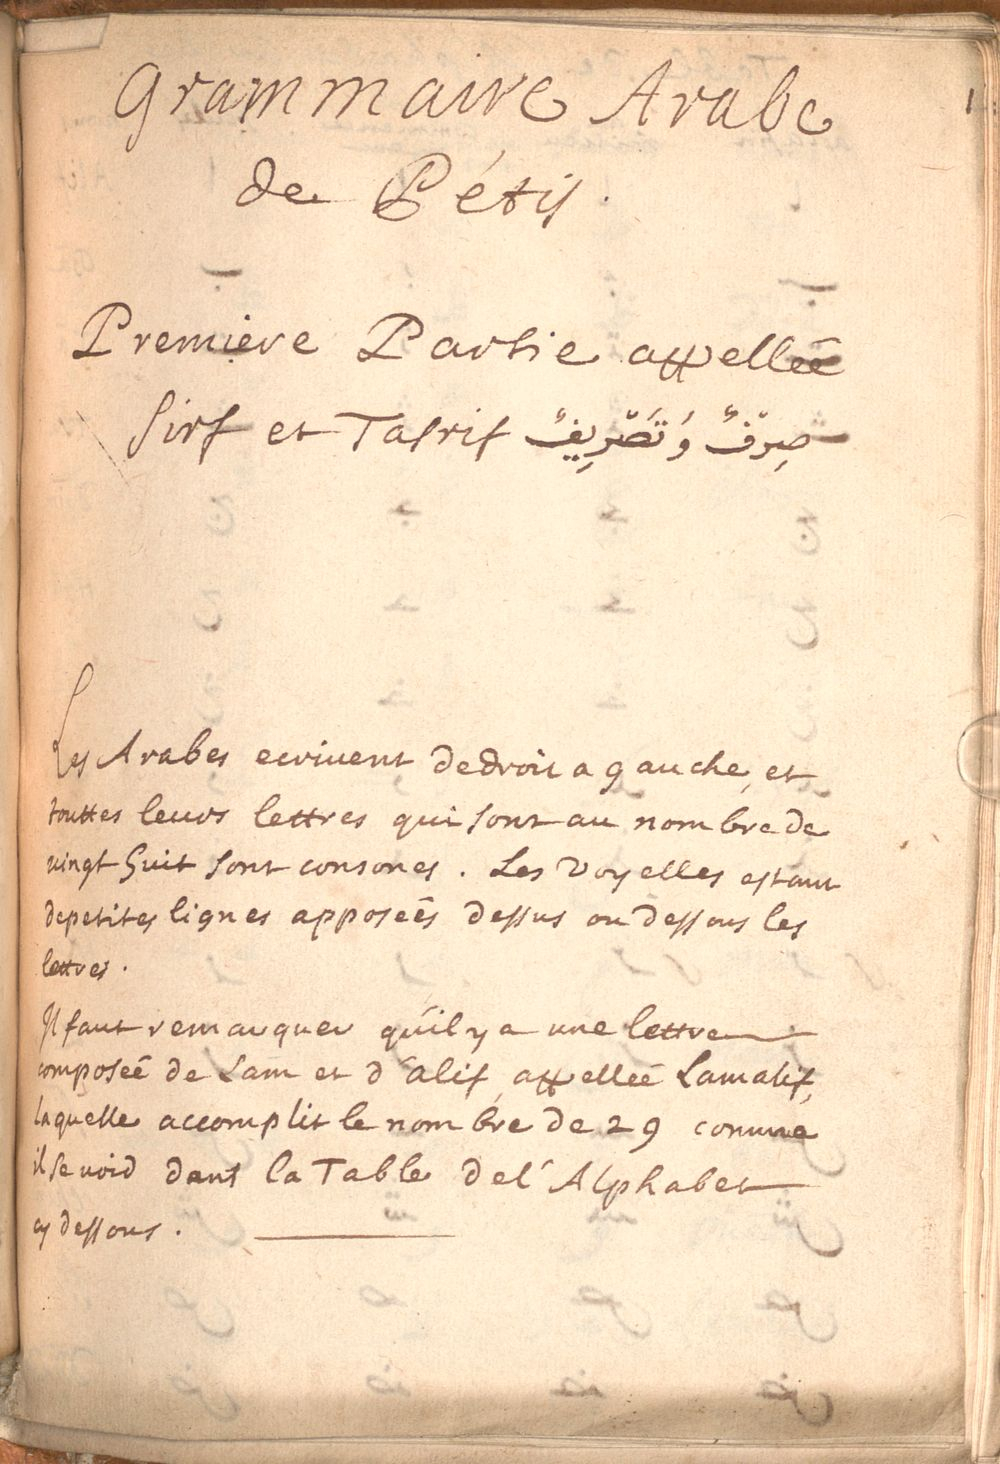 1
Grammaire Arabe
de Pétis.
Premiere Partie appelleé
Sirf et Tasrif صِرْفٌ وَ تَصْرِيفٌ
Les Arabes ecrivent de droit a gauche, et
touttes leurs lettres qui sont au nombre de
vingt huit sont consones. Les Voyelles estant
de petites lignes apposeés dessus ou dessous les
lettres.
Il faut remarquer qu'il y a une lettre
composeé de Lam et d'alif, appelleé Lamalif,
laquelle accomplit le nombre de 29 comme
il se void dans la Table de l'Alphabet
cy dessous.